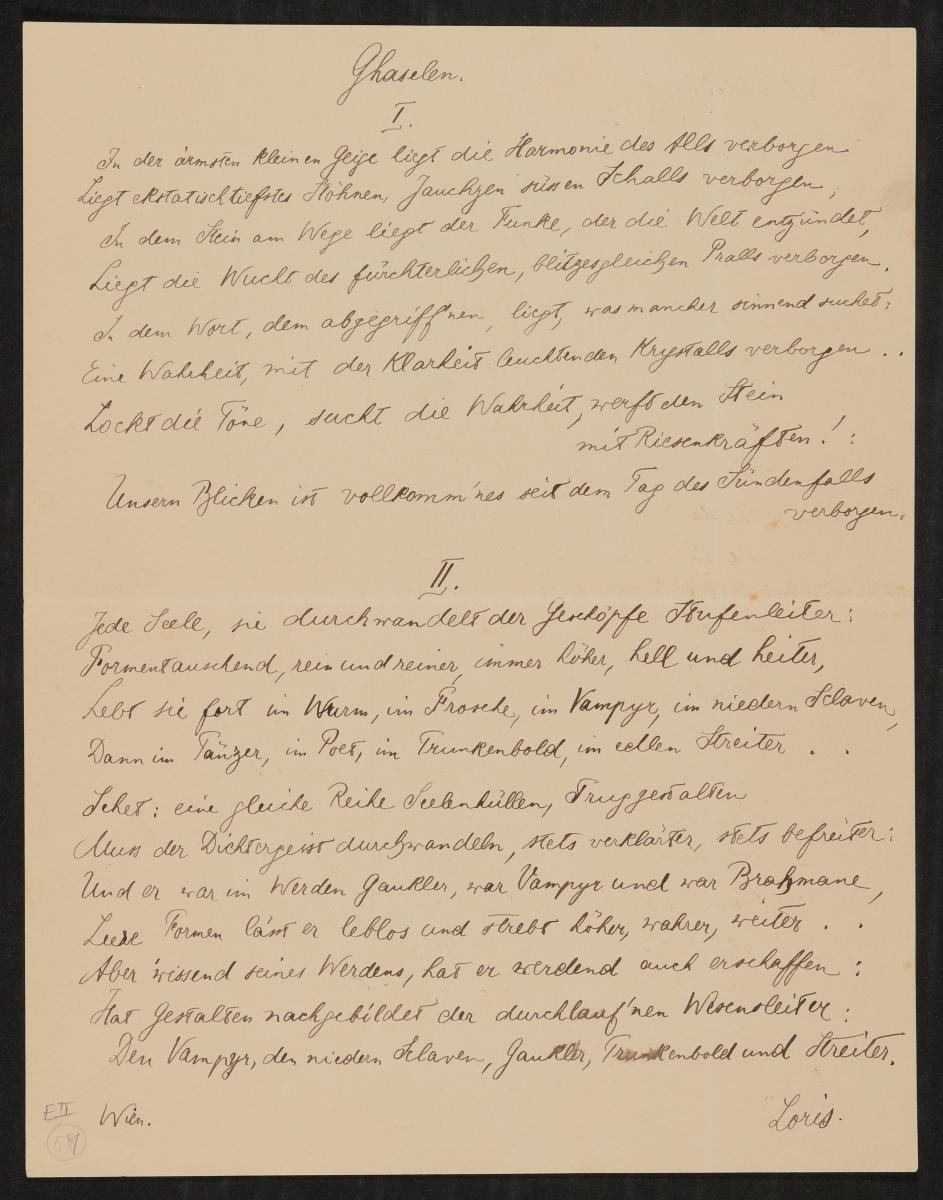 Ghaselen.
I.
In der ärmsten kleinen Geige liegt die Harmonie des Alls verborgen
Liegt ekstatisch tiefstes Stöhnen, Jauchzen süssen Schalls verborgen,
In dem Stein am Wege liegt der Funke, der die Welt entzündet,
Liegt die Wucht des fürchterlichen, blitzesgleichen Pralls verborgen.
In dem Wort, dem abgegriff'nen, liegt, was mancher sinnend suchet:
Eine Wahrheit, mit der Klarheit leuchtenden Krystalls verborgen . .
Lockt die Töne, sucht die Wahrheit, werft den Stein
mit Riesenkräften! :
Unsern Blicken ist vollkomm'nes seit dem Tag des Sündenfalls
verborgen.
II.
Jede Seele, sie durchwandelt der Geschöpfe Stufenleiter:
Formentauschend, rein und reiner, immer höher, hell und heiter,
Lebt sie fort im Wurm, im Frosche, im Vampyr, im niedern Sclaven,
Dann im Tänzer, im Poet, im Trunkenbold, im edlen Streiter . .
Sehet: eine gleiche Reihe Seelenhüllen, Truggestalten
Muss der Dichtergeist durchwandeln, stets verklärter, stets befreiter:
Und er war im Werden Gaukler, war Vampyr und war Brahmane,
Leere Formen lässt er leblos und strebt höher, wahrer, weiter . .
Aber wissend seines Werdens, hat er werdend auch erschaffen:
Hat Gestalten nachgebildet der durchlauf'nen Wesensleiter:
Den Vampyr, den niedern Sclaven, Gaukler, Trunkenbold und Streiter.
Wien.
Loris.
E II